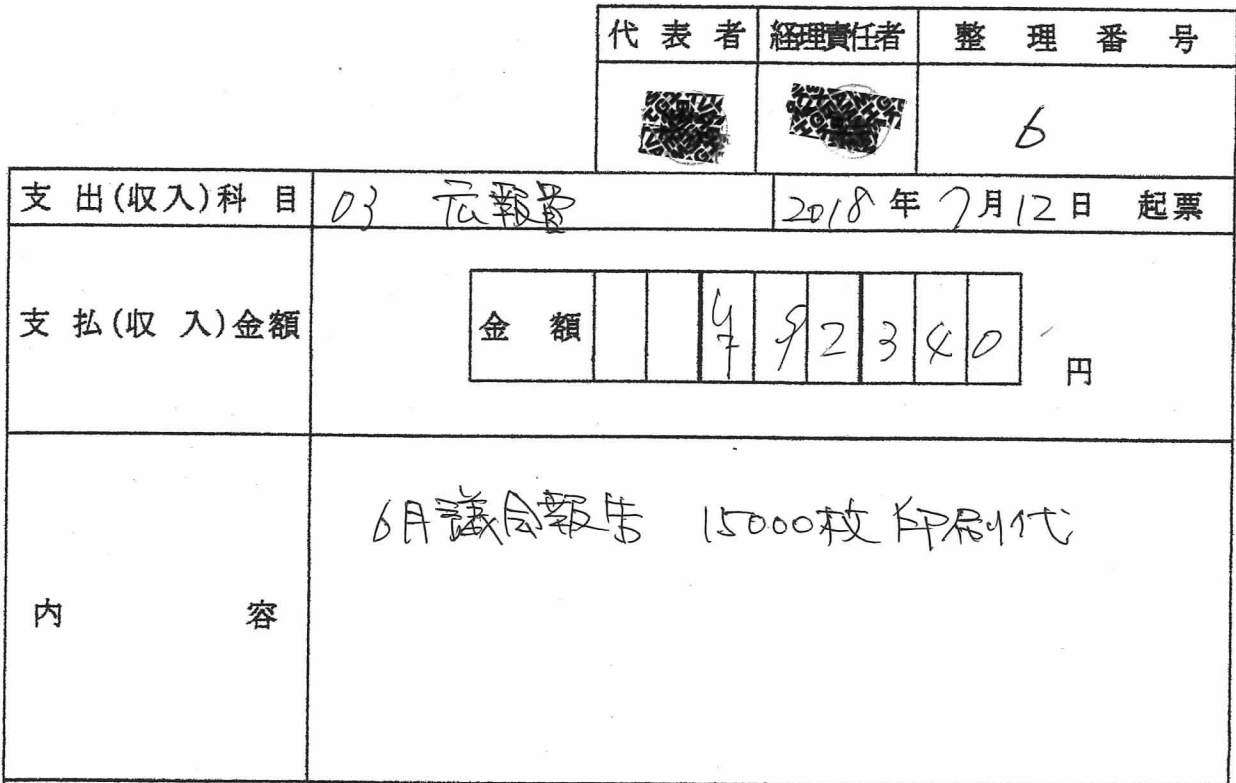 代表者 経理責任者 整理番号
6
支出(収入)科目 03 広報費 2018年7月12日 起票
支払(収入)金額 金額 ¥92340 円
6月議会報告 15000枚印刷代
内容